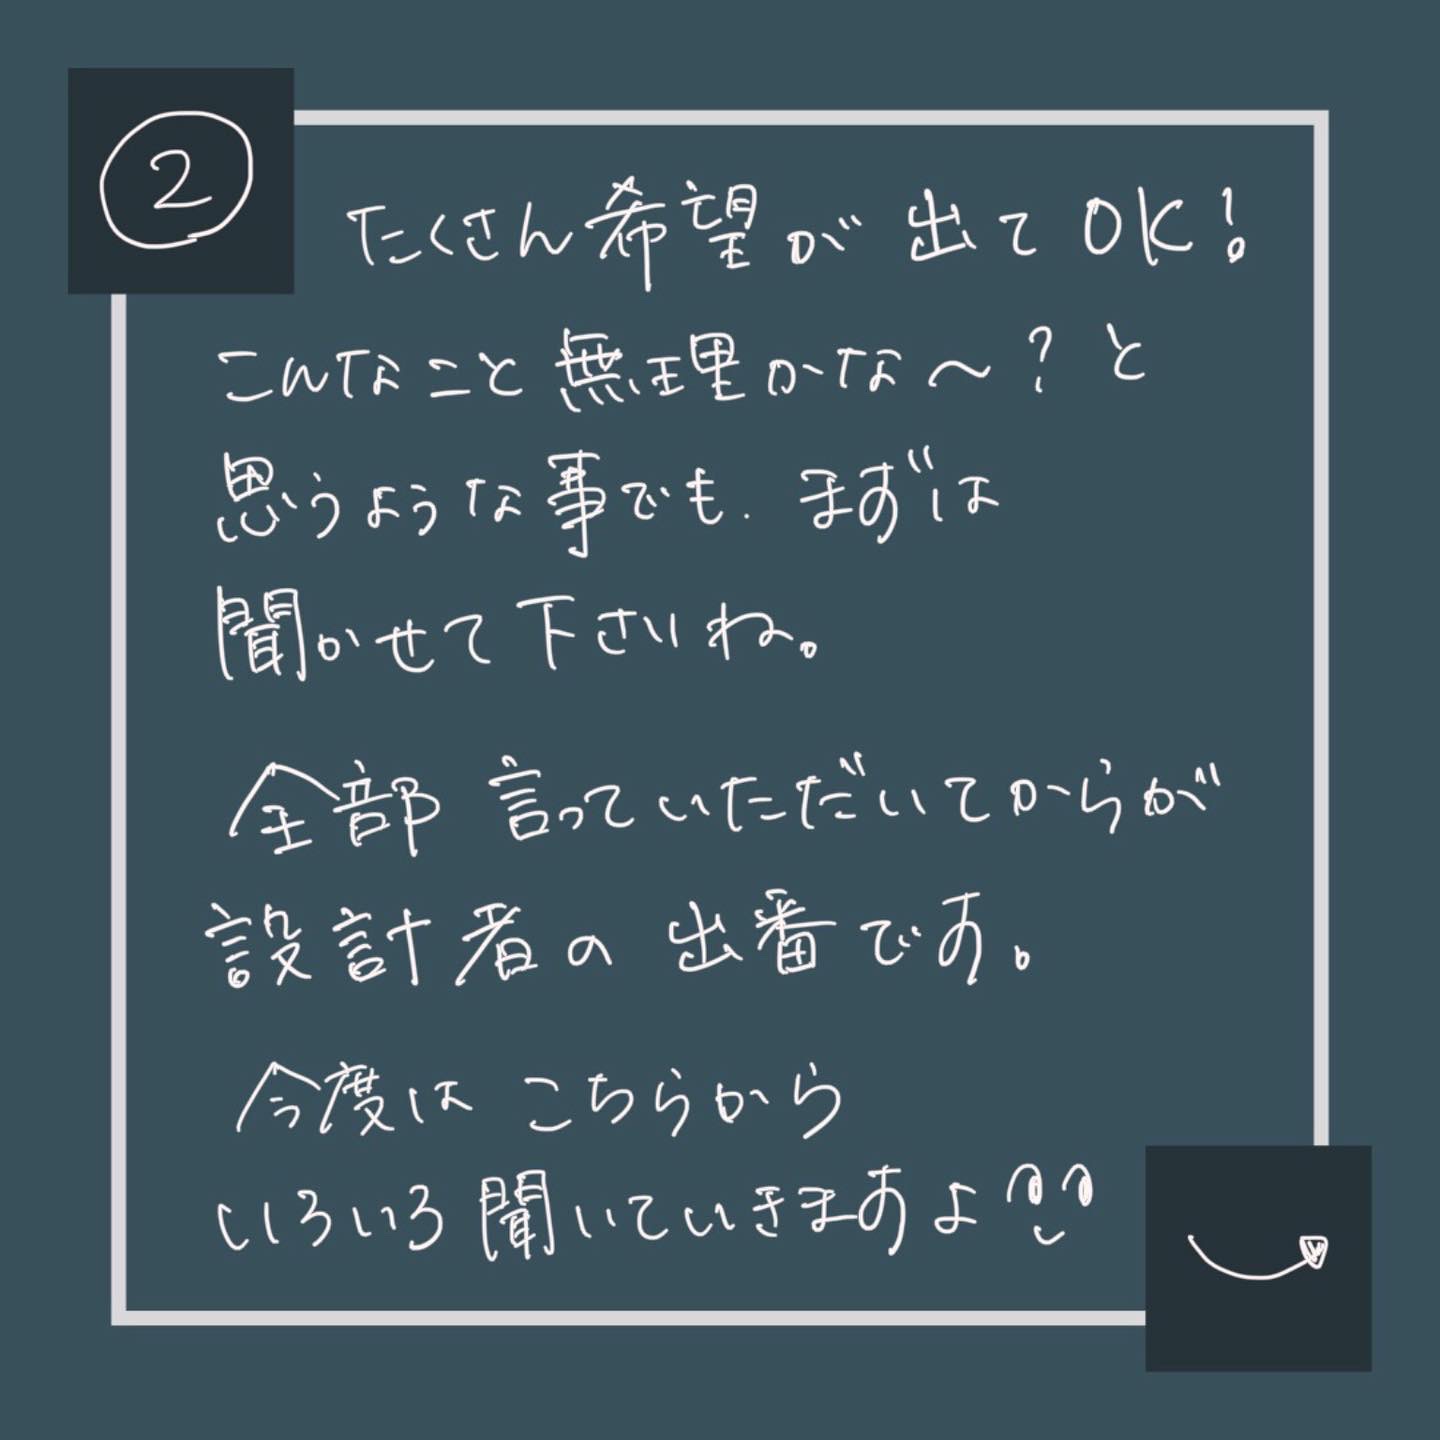 ②
たくさん希望が出てOK!
こんなこと無理かな〜?と
思うような事でも.まずは
聞かせて下さいね。
全部言っていただいてからが
設計者の出番です。
今度はこちらから
いろいろ聞いていきますよ